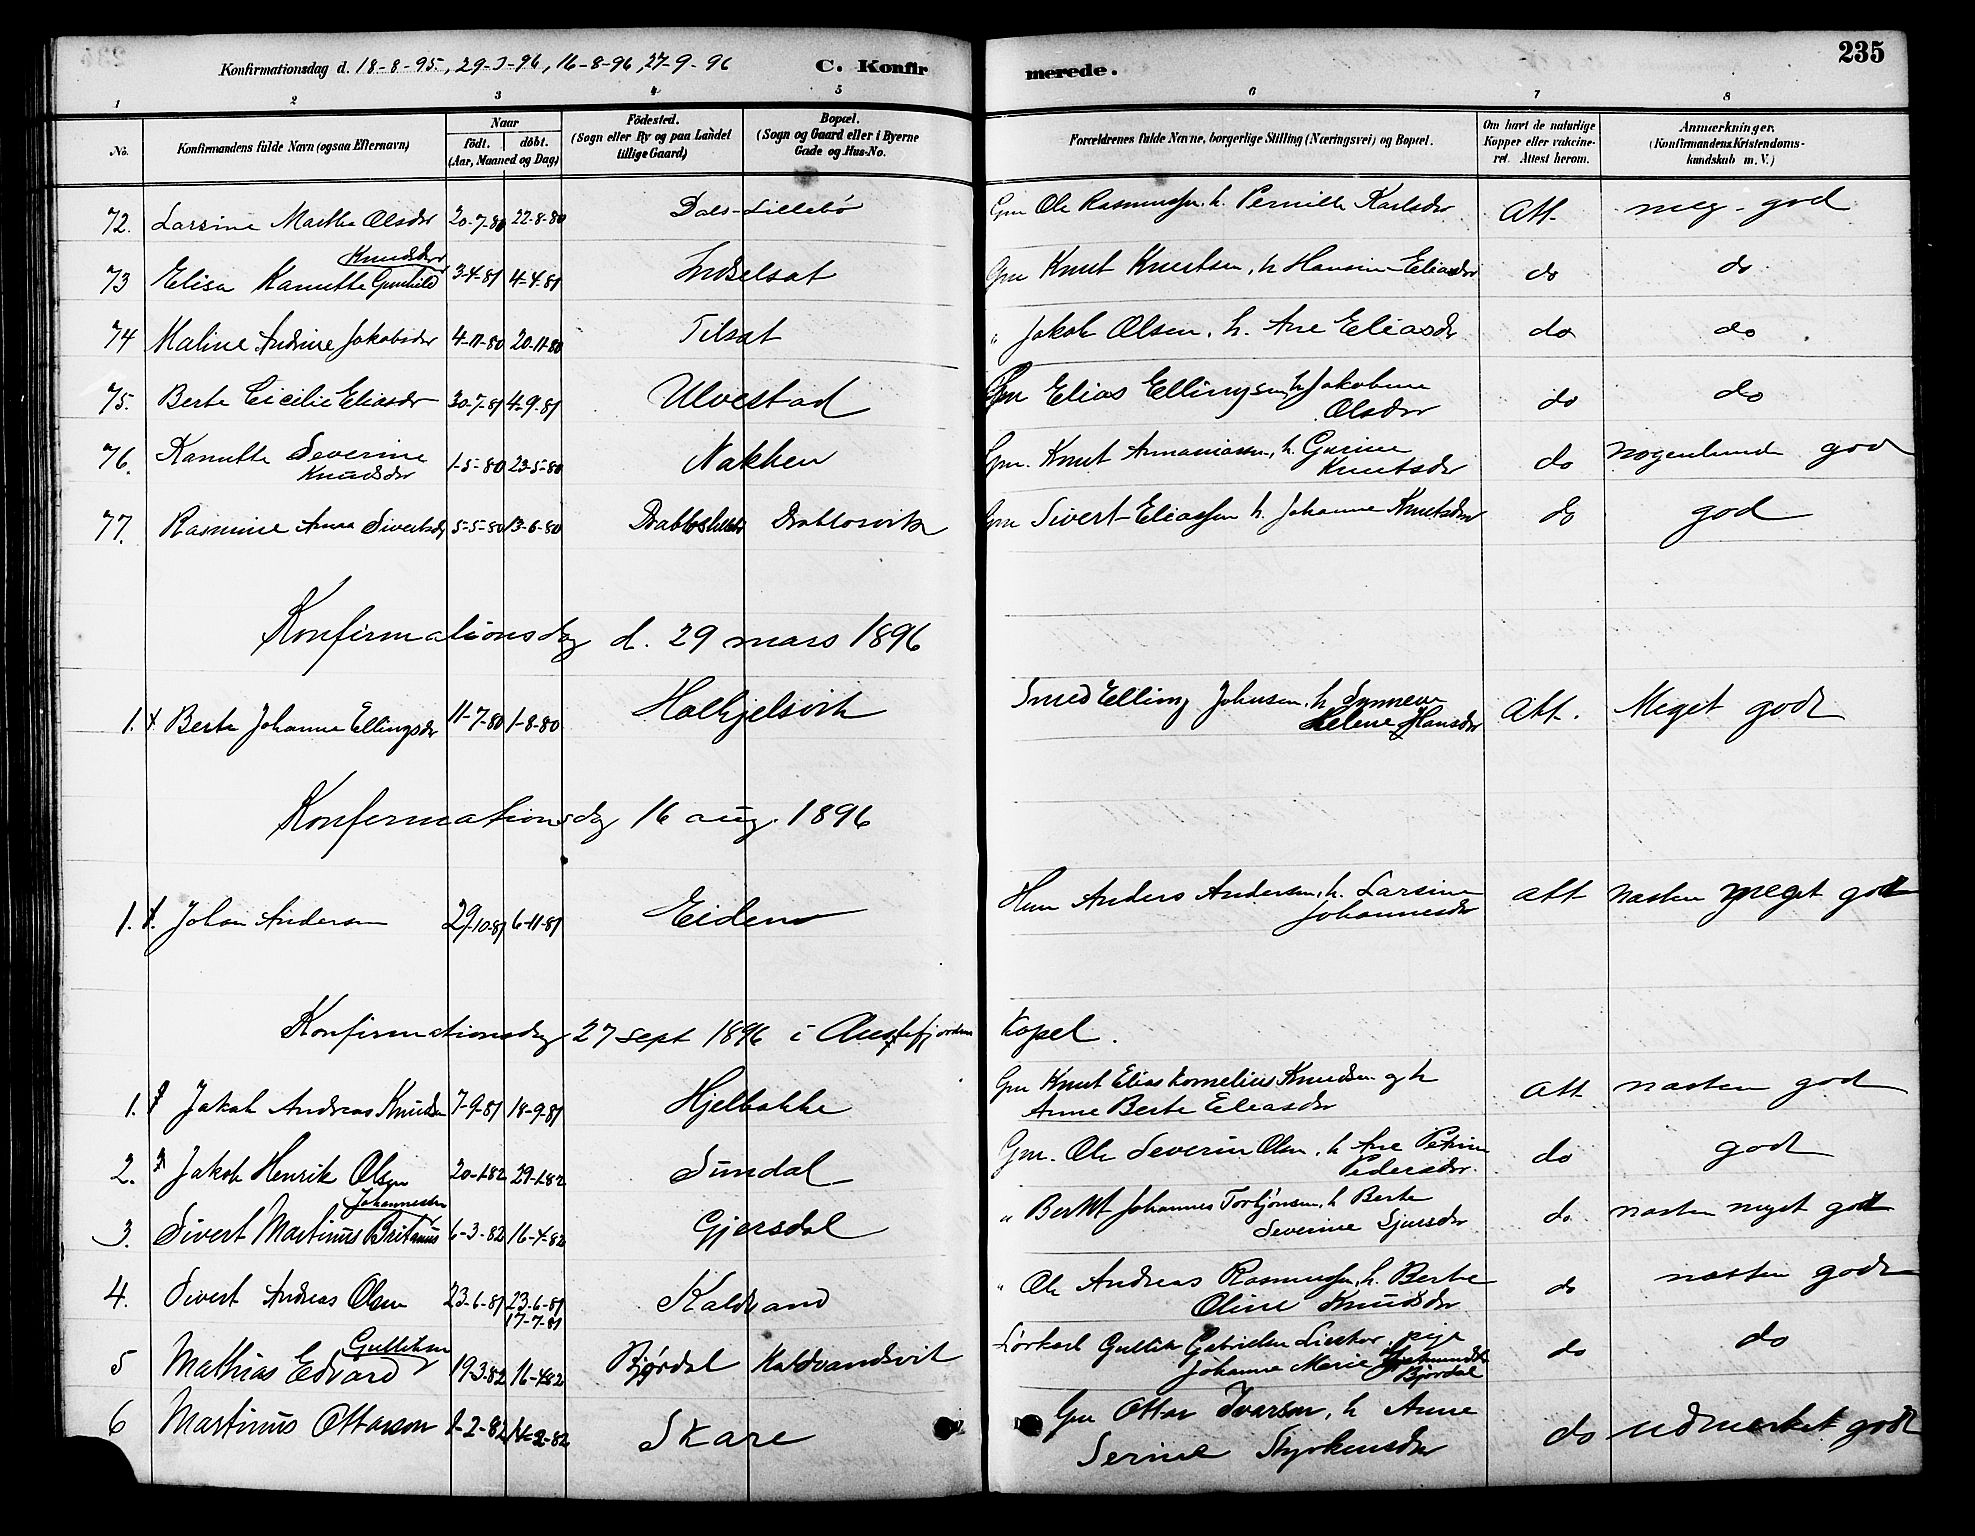 235
Konfirmationsdag d. 18-8-95, 29-3-96, 16-8-96, 27-9-96 C. Konfirmerede.
1 2 3 4 5 6 7 8
No. Konfirmandens fulde Navn (ogsaa Efternavn) Naar födt. döbt. (Aar, Maaned og Dag) Födested. (Sogn eller By og paa Landet tillige Gaard) Bopæl. (Sogn og Gaard eller i Byerne Gade og Hus-No. Forældrenes fulde Navne, borgerlige Stilling (Næringsvei) og Bopæl. Om havt de naturlige Kopper eller vakcineret. Attest herom. Anmærkninger. (Konfirmandens Kristendomskundskab m. V.)
72. Larsine Martha Olsdr 20-7-80 22-8-80 Dals-Lillebö Gm Ole Rasmussen, h. Pernille Karlsdr Att. meg. god
73 Elisa Kanutte Gunhild Knudsdr 3-4-81 4-4-81 Indselsat Gm Knut Knutsen, h Hansine Eliasdr do do
74 Maline Andrine Jakobsdr 4-11-80 20-11-80 Tilsat " Jakob Olsen, h. Ane Eliasdr do do
75. Berte Cicilie Eliasdr 30-7-81 4-9-81 Ulvestad Gm Elias Ellingsen, h Jakobine Olsdr do do
76. Kanutte Severine Knudsdr 1-5-80 23-5-80 Nakken Gm. Knut Ananiassen, h. Gurine Knutsdr do nogenlunde god
77. Rasmine Anna Sivertsdr 5-5-80 13-6-80 Drabloshelle Drablosvik Gm Sivert Eliassen h. Johanne Knutsdr do god
Konfirmationsdag d. 29 mars 1896
1. Berte Johanne Ellingsdr 11-7-80 1-8-80 Halkjelsvik Smed Elling Johnsen, h Synneva Helene Hansdr Att. Meget godt
Konfirmationsdag 16 aug. 1896
1. Johan Andersen 29-10-81 6-11-81 Eidem Hm Anders Andersen, h. Larsine Johannesdr att næsten meget godt
Konfirmationsdag 27 sept 1896 i Austefjorden kapel.
1. Jakob Andreas Knudsen 7-9-81 18-9-81 Hjelbakke Gm Knut Elias Kornelius Knudsen og h Anne Berte Eliasdr Att næsten god
2. Jakob Henrik Olsen 20-1-82 29-1-82 Sundal Gm. Ole Severin Olsen, h Ane Petrine Pedersdr. do godt
3. Sivert Martinus Britanus Johannessen 6-3-82 16-4-82 Gjersdal " Johannes Torbjönsen, h Berte Severine Sjursdr do næsten meget godt
4. Sivert Andreas Olsen 23-6-81 23-6-81 17-7-81 Kaldvand " Ole Andreas Rasmussen, h. Berte Oline Knudsdr do næsten godt
5 Mathias Edvard Gulliksen 19-3-82 16-4-82 Bjørdal Kaldvandsvik Lørkarl Gullik Gabrielsen, pige Johanne Marie Bjørdal do do
6 Martinus Ottarson 1-2-82 14-2-82 Skare Gm Ottar Ivarson, h Anne Serine Styrkersdr do udmærket godt